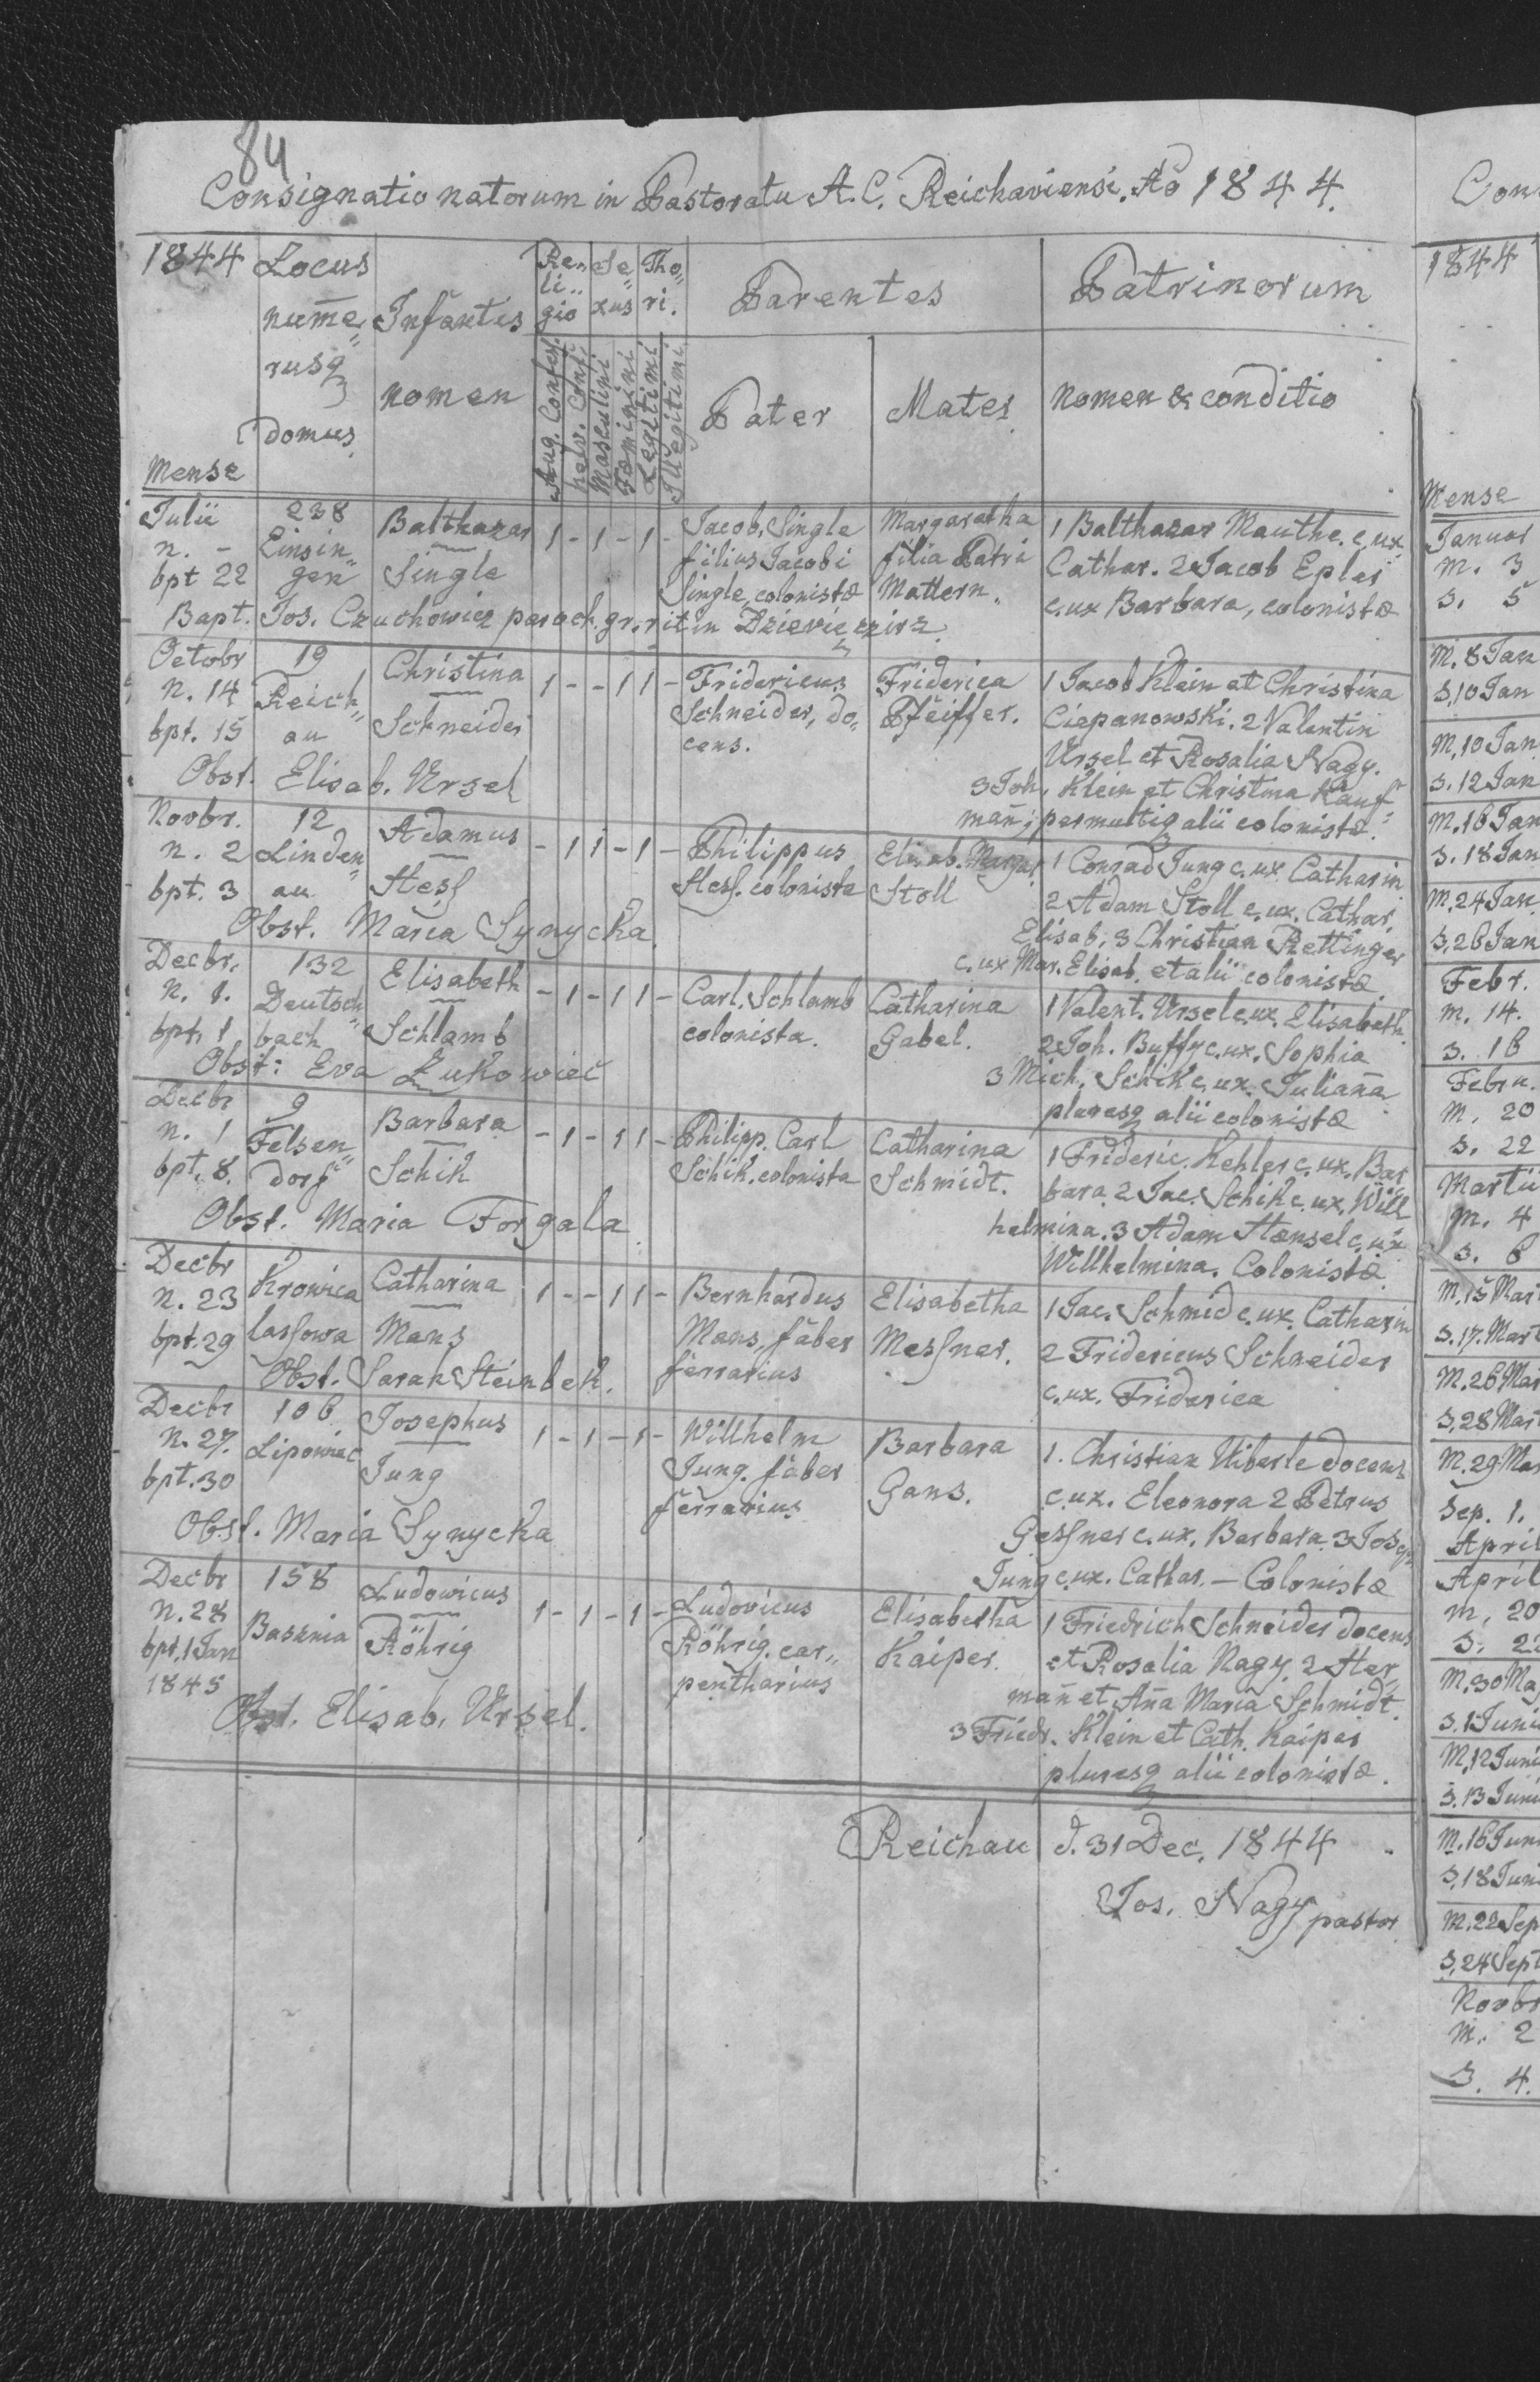 84
Consignatio natorum in Pastoratu A. C. Reichaviensi. Ao 1844.
1844 Locus nume„ rusq domus
Infantes nomen
Re„ li„ gio
Se„ xus
Tho„ ri.
Parentes
Patrinorum
Aug. Confes.
helv. Conf.
Masculini
Fæminini
Legitimi
Illegitimi
Pater
Mater
Nomen & conditio
Mense
Julii 238 Balthazar 1 - 1 - 1 - Jacob, Single Margaratha 1 Balthazar Mauthe. c. ux
n. - Einsin„ Single filius Jacobi filia Patri Cathar. 2 Jacob Epler
bpt 22 gen Single, colonistæ Mattern. c. ux Barbara, colonistæ
Bapt. Jos. Czuchowicz paroch. gr. rit in
Octobr 19 Christina 1 - - 1 1 - Fridericus Friderica 1 Jacob Klein et Christina
n. 14 Reich„ Schneider Schneider, do„ Pfeiffer. Ciepanowski. 2 Valentin
bpt. 15 au cens. Ursel et Rosalia Nagy.
Obst. Elisab. Ursel 3 Joh. Klein et Christina Kauf„
mañ; permultiq alii colonistæ.
Novbr. 12 Adamus - 1 1 - 1 - Philippus Elisab. Margar 1 Conrad Jung c. ux. Catharin
n. 2 Linden„ Hess Hess. colonista Stoll 2 Adam Stoll c. ux. Cathar,
bpt. 3 au Elisab, 3 Christian Rettinger
Obst. Maria Synycka c. ux Mar. Elisab. et alii colonistæ
Decbr. 132 Elisabeth - 1 - 1 1 - Carl, Schlamb Catharina 1 Valent. Ursel c. ux. Elisabeth
n. 1. Deutsch„ Schlamb colonista. Gabel. 2 Joh. Buffy c. ux. Sophia
bpt. 1 bach 3 Mich. Schik c. ux. Juliaña
Obst: Eva Łukowiec pluresq alii colonistæ
Decbr 9 Barbara - 1 - 1 1 - Philipp. Carl Catharina 1 Frideric. Kehler c. ux. Bar
n. 1 Felsen„ Schik Schik. colonista Schmidt. bara 2 Jac. Schik c. ux. Will
bpt. 8. dorf helmina. 3 Adam Hænsel c. ux
Obst. Maria Forgala Willhelmina. Colonistæ
Decbr Krowica Catharina 1 - - 1 1 - Bernhardus Elisabetha 1 Jac. Schmid c. ux. Catharin
n. 23 lassowa Mans Mans, faber Messner. 2 Fridericus Schneider
bpt. 29 ferrarius c. ux. Friderica
Obst. Sarah Steinbek.
Decbr 106 Josephus 1 - 1 - 1 - Willhelm Barbara 1. Christian Uiberle docens
n. 27. Lipowiec Jung Jung. faber Gans. c. ux. Eleonora 2 Petrus
bpt. 30 ferrarius Gessner c. ux. Barbara. 3 Joseph
Obst. Maria Synycka Jung c. ux. Cathar. — Colonistæ
Decbr 158 Ludowicus 1 - 1 - 1 - Ludovicus Elisabetha 1 Friedrich Schneider docens
n. 28 Basznia Röhrig Röhrig. car„ Kaiper. et Rosalia Nagy. 2 Her„
bpt. 1 Jan pentharius mañ et Aña Maria Schmidt.
1845 3 Friedr. Klein et Cath. Kaiper
Obst. Elisab. Ursel. pluresq alii colonistæ.
Reichau d. 31 Dec. 1844
Jos. Nagy pastor
Con
1844
Mense
Januar
M. 3
S. 5
M. 8 Jan
S. 10 Jan
M. 10 Jan
S. 12 Jan
M. 16 Jan
S. 18 Jan
M. 24 Jan
S. 26 Jan
Febr.
M. 14.
S. 16
Febru.
M. 20
S. 22
Martii
M. 4
S. 6
M. 15 Mar
S. 17. Mart
M. 26 Mar
S. 28 Mart
M. 29 Mar
Sep. 1.
April
April
M. 20
S. 22
M. 30 Ma
S. 1 Juni
M. 12 Juni
S. 13 Juni
M. 16 Jun
S. 18 Juni
M. 22 Sep
S. 24 Sept
Novbr
M. 2
S. 4.